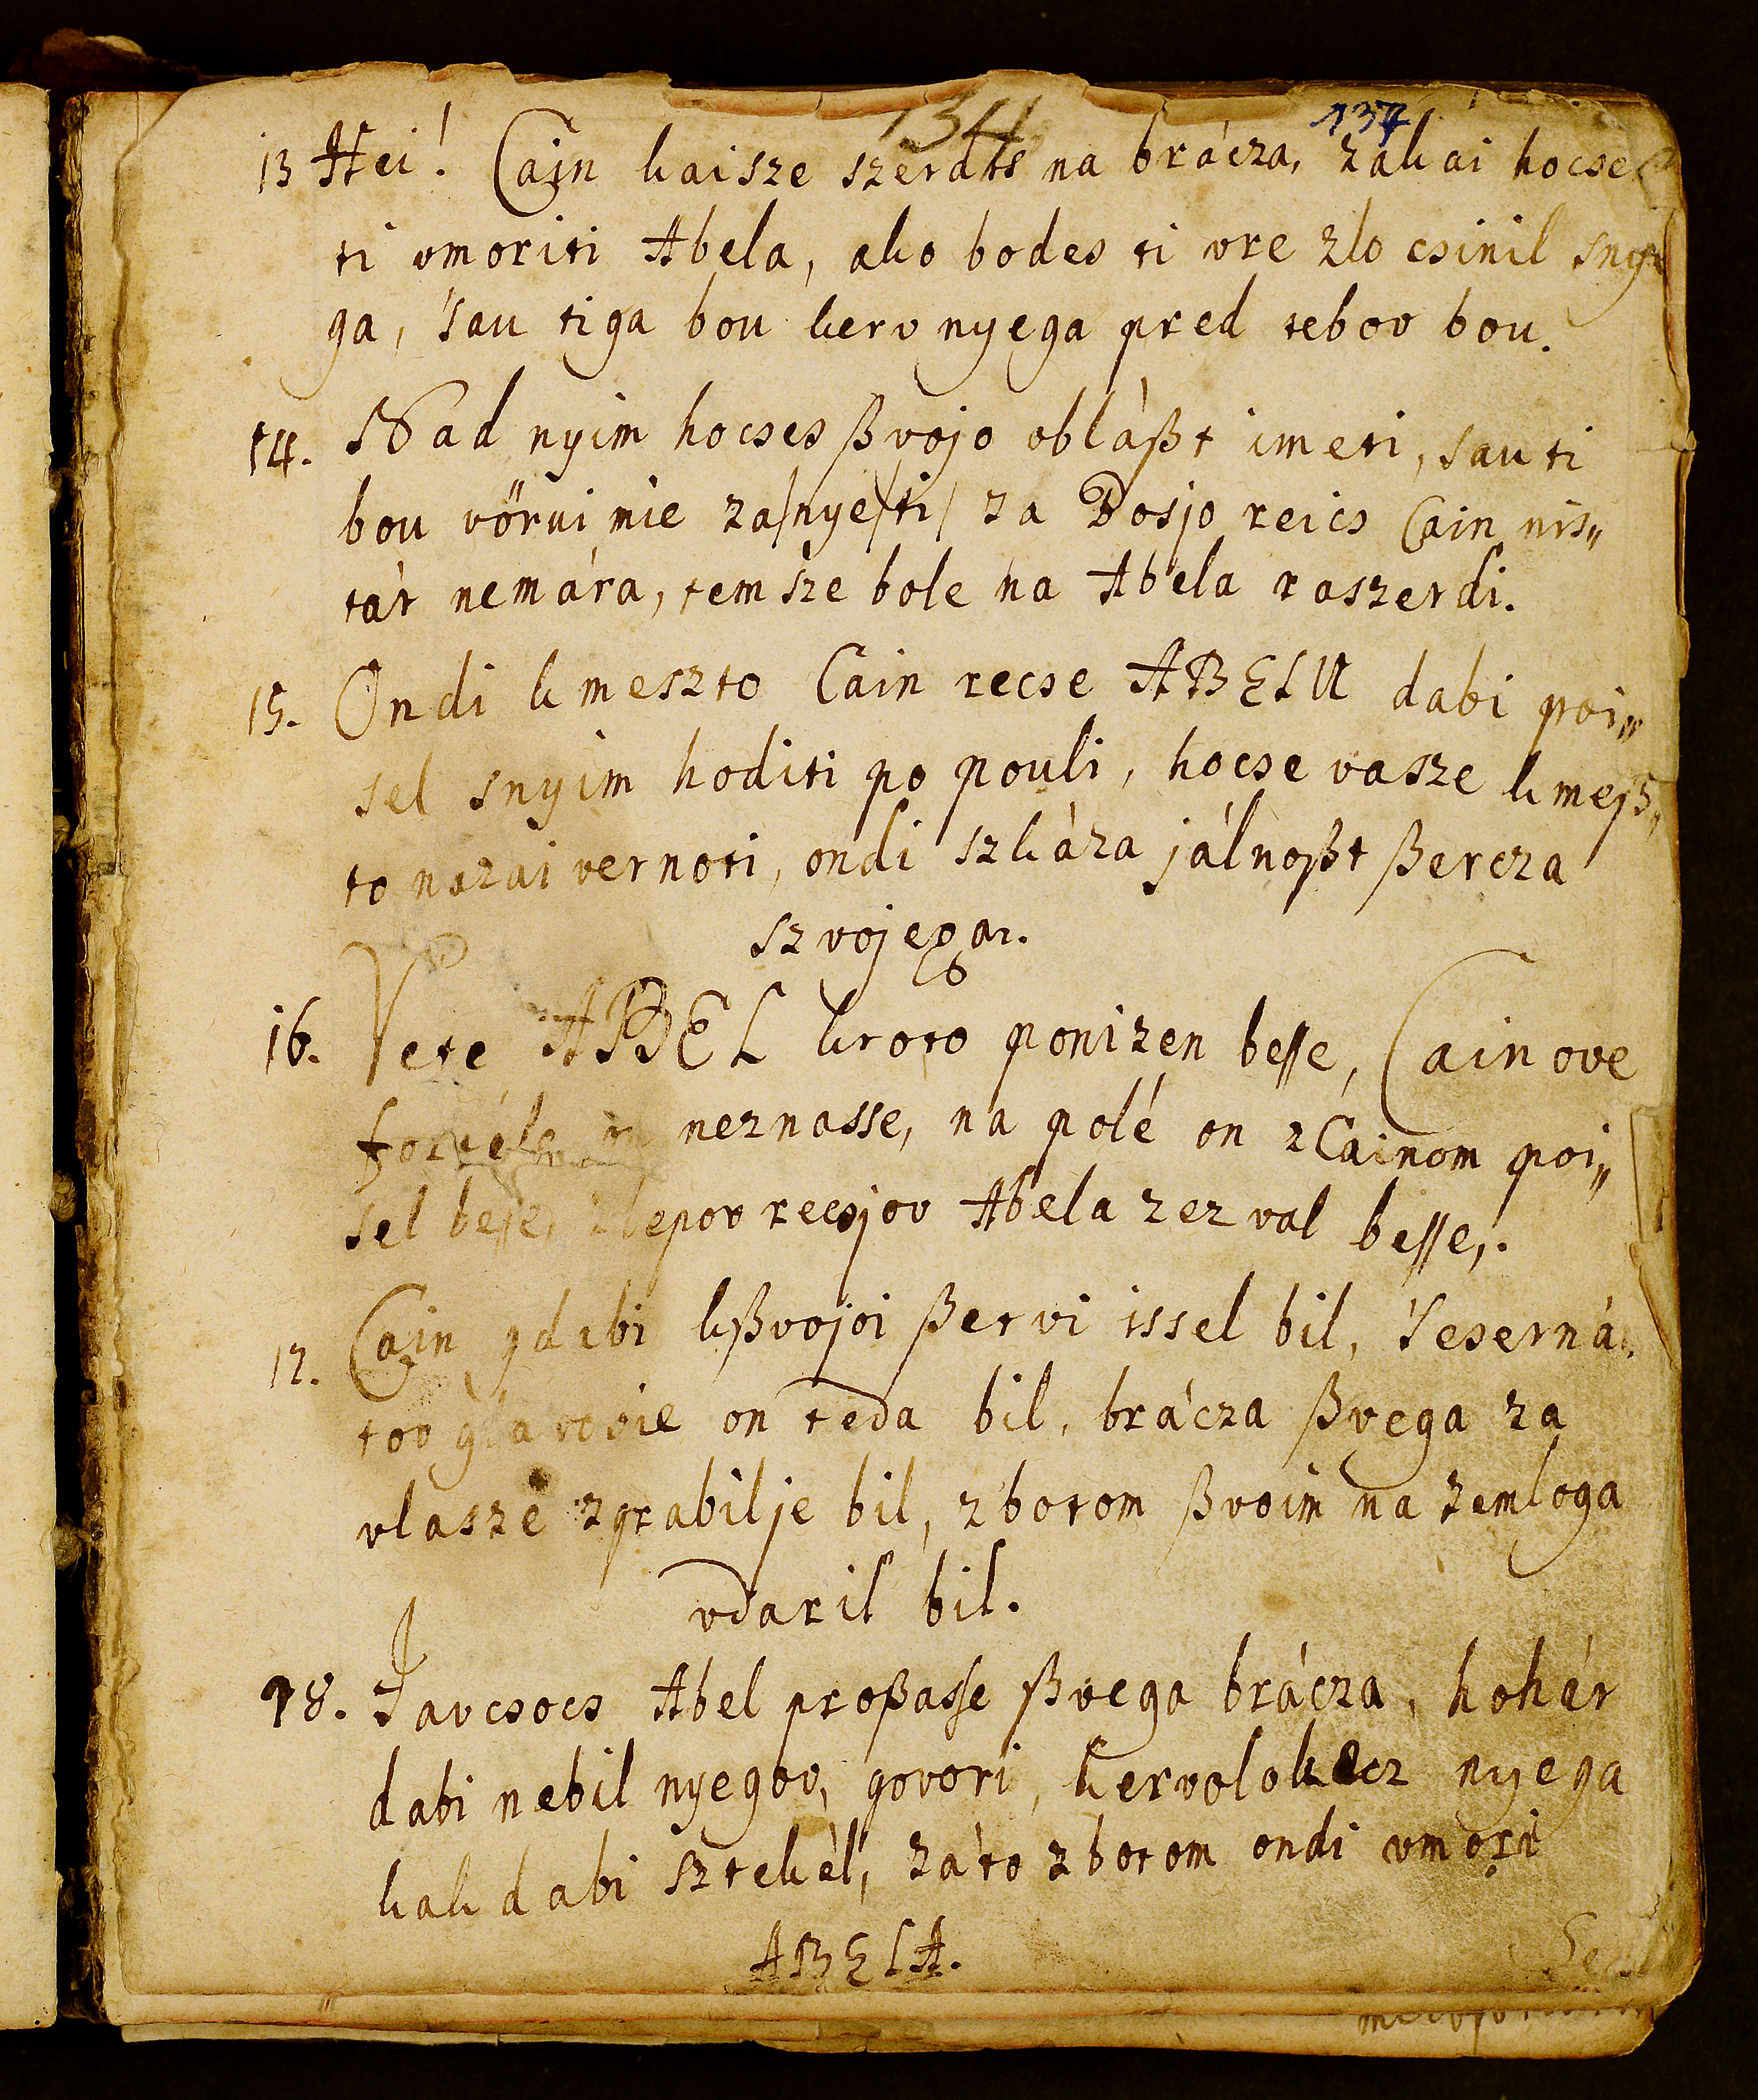 134 137
13 Hei! Cain kaisze szerdis na brácza, zakai hocses
ti vmoriti Abela, ako bodes ti vre zlo csinil snye
ga, 'sau tiga bou kerv nyega pred tebov bou.
14. Nad nyim hocses ßvojo obláßt imeti, sau ti
bou vörvi nie za/nye/ti/ za Bosjo reics Cain nis„
tár nemára, tem sze bole na Abela raszerdi.
15. Ondi k meszto Cain recse ABELU dabi poi„
sel snyim hoditi po pouli, hocse vasze k meß„
to nazai vernoti, ondi szkáza jálnoßt ßercza
szvojega.
16. Vete ABEL kroto ponizen besse, Cain ove
neznasse, na polé on z Cainom poi„
sel besse, zlepov recsjov Abela zezval besse,.
17. Cain gdabi kßvojoi ßervi issel bil, 'seserná
tov glavovie on teda bil, brácza ßvega za
vlasze zgrabil je bil, z botom ßvoim na zemloga
vdaril bil.
18. Javcsocs Abel proßasse ßvega brácza, hohár
dabi nebil nyegov, govori, kervolokecz nyega
kak dabi sztekèl, záto z botom ondi vmori
ABELA.